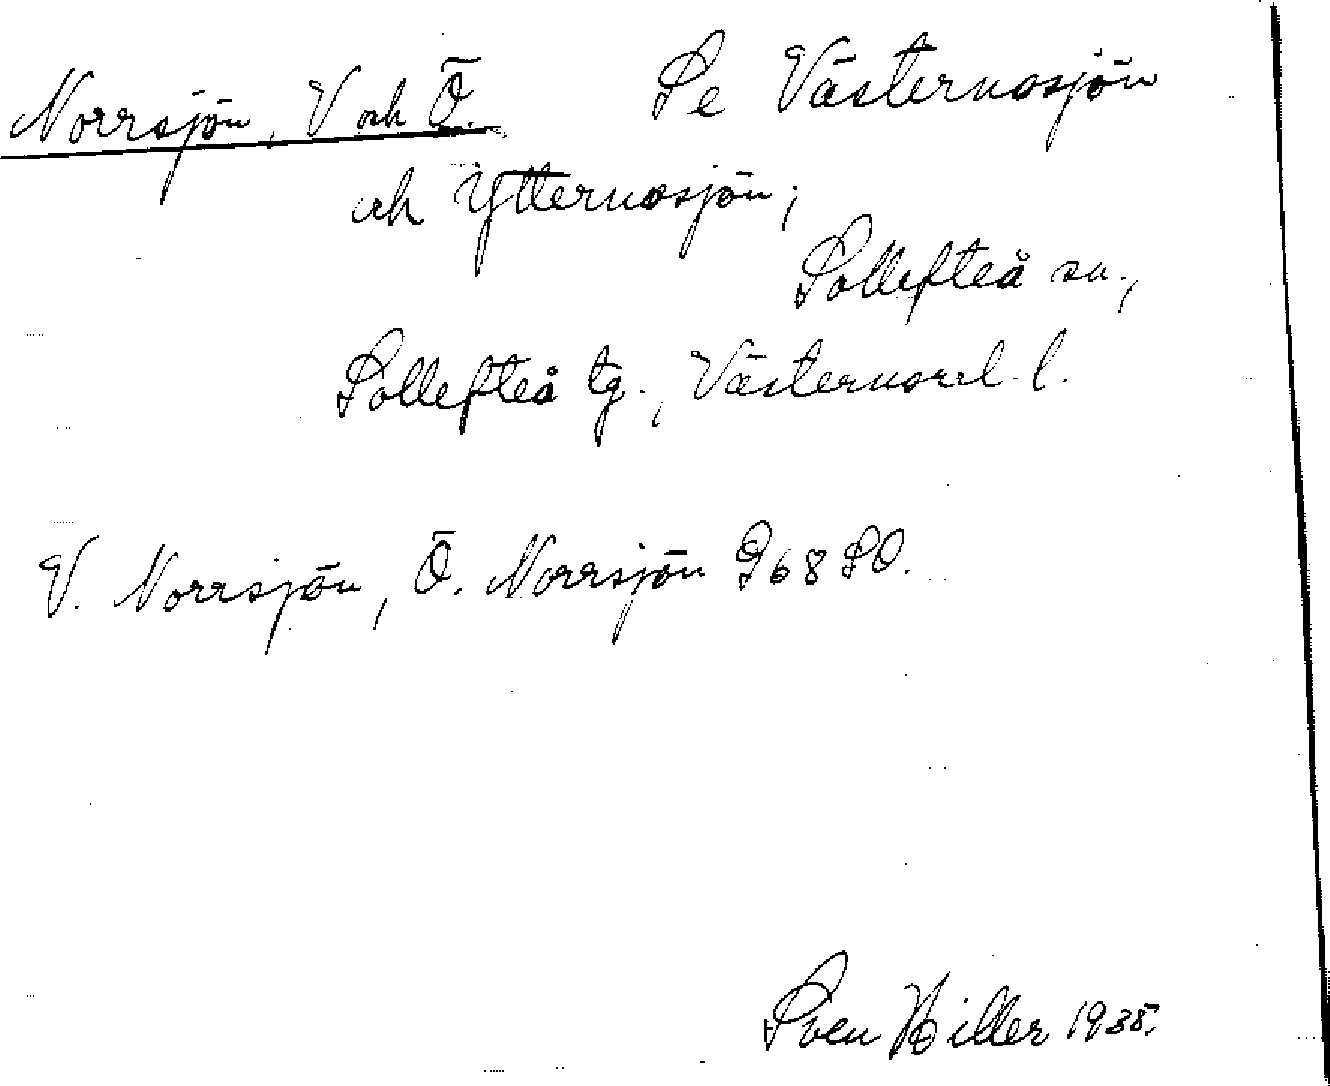 Norrsjön, V och Ö. Se Västernosjön
och Ytternosjön;
Sollefteå sn.,
Sollefteå tg., Västernorrl. l.
V. Norrsjön, Ö. Norrsjön G68SO.
Sven Hiller 1935.